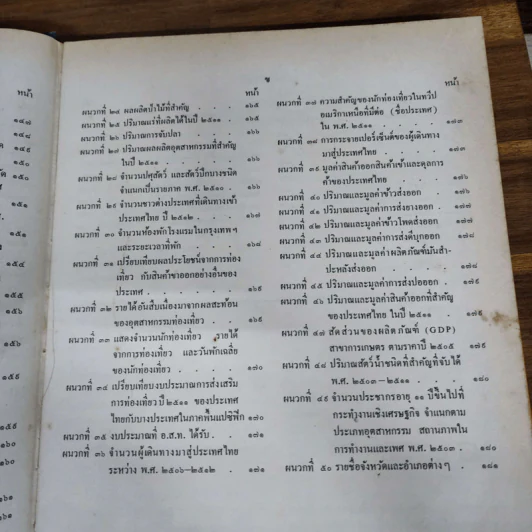 หน้า
๑๔๗
๑๔๘
๑๕๐
๑๕๑
๑๕๔
๑๕๕
๑๕๙
๑๖๐
๑๖๑
ช
หน้า
ผนวกที่ ๒๔ ผลผลิตป่าไม้ที่สำคัญ . . . . ๑๖๕
ผนวกที่ ๒๕ ปริมาณแร่ที่ผลิตได้ในปี ๒๕๑๑ . . ๑๖๕
ผนวกที่ ๒๖ ปริมาณการจับปลา . . . . ๑๖๖
ผนวกที่ ๒๗ ปริมาณผลผลิตอุตสาหกรรมที่สำคัญ
ในปี ๒๕๑๑ . . . . ๑๖๖
ผนวกที่ ๒๘ จำนวนปศุสัตว์ และสัตว์ปีกบางชนิด
จำแนกเป็นรายภาค พ.ศ. ๒๕๑๐ . . ๑๖๖
ผนวกที่ ๒๙ จำนวนชาวต่างประเทศที่เดินทางเข้า
ประเทศไทย ปี ๒๕๑๒ . . ๑๖๗
ผนวกที่ ๓๐ จำนวนห้องพักโรงแรมในกรุงเทพฯ
และระยะเวลาที่พัก . . . ๑๖๘
ผนวกที่ ๓๑ เปรียบเทียบผลประโยชน์จากการท่อง
เที่ยว กับสินค้าขาออกอย่างอื่นของ
ประเทศ . . . . . ๑๖๙
ผนวกที่ ๓๒ รายได้อันสืบเนื่องมาจากผลสะท้อน
ของอุตสาหกรรมท่องเที่ยว . . . ๑๖๙
ผนวกที่ ๓๓ แสดงจำนวนนักท่องเที่ยว รายได้
จากการท่องเที่ยว และวันพักเฉลี่ย
ของนักท่องเที่ยว . . . . ๑๗๐
ผนวกที่ ๓๔ เปรียบเทียบงบประมาณการส่งเสริม
การท่องเที่ยว ปี ๒๕๑๑ ของประเทศ
ไทยกับบางประเทศในภาคพื้นแปซิฟิก ๑๗๐
ผนวกที่ ๓๕ งบประมาณที่ อ.ส.ท. ได้รับ . . ๑๗๑
ผนวกที่ ๓๖ จำนวนผู้เดินทางมาสู่ประเทศไทย
ระหว่าง พ.ศ. ๒๕๐๖–๒๕๑๒ . ๑๗๑
หน้า
ผนวกที่ ๓๗ ความสำคัญของนักท่องเที่ยวในทวีป
อเมริกาเหนือที่มีต่อ (ชื่อประเทศ)
ใน พ.ศ. ๒๕๑๑ . . . . ๑๗๓
ผนวกที่ ๓๘ การกระจายเปอร์เซ็นต์ของผู้เดินทาง
มาสู่ประเทศไทย . . . . ๑๗๓
ผนวกที่ ๓๙ มูลค่าสินค้าออกสินค้าเข้าและดุลการ
ค้าของประเทศไทย . . . ๑๗๕
ผนวกที่ ๔๐ ปริมาณและมูลค่าข้าวส่งออก . . ๑๗๖
ผนวกที่ ๔๑ ปริมาณและมูลค่าการส่งยางออก . ๑๗๗
ผนวกที่ ๔๒ ปริมาณและมูลค่าข้าวโพดส่งออก . ๑๗๗
ผนวกที่ ๔๓ ปริมาณและมูลค่าการส่งดีบุกออก ๑๗๘
ผนวกที่ ๔๔ ปริมาณและมูลค่าผลิตภัณฑ์มันสำ-
ปะหลังส่งออก . . . . ๑๗๘
ผนวกที่ ๔๕ ปริมาณและมูลค่าการส่งปอออก . ๑๗๘
ผนวกที่ ๔๖ ปริมาณและมูลค่าสินค้าออกที่สำคัญ
ของประเทศไทย ในปี ๒๕๑๑ . . ๑๗๙
ผนวกที่ ๔๗ สัดส่วนของผลิตภัณฑ์ (GDP)
สาขาการเกษตร ตามราคาปี ๒๕๐๕ ๑๗๙
ผนวกที่ ๔๘ ปริมาณสัตว์น้ำชนิดที่สำคัญที่จับได้
พ.ศ. ๒๕๐๓–๒๕๑๑ . . . ๑๘๐
ผนวกที่ ๔๙ จำนวนประชากรอายุ ๑๑ ปีขึ้นไปที่
กระทำงานเชิงเศรษฐกิจ จำแนกตาม
ประเภทอุตสาหกรรม สถานภาพใน
การทำงานและเพศ พ.ศ. ๒๕๐๓ . ๑๘๐
ผนวกที่ ๕๐ รายชื่อจังหวัดและอำเภอต่างๆ . ๑๘๑